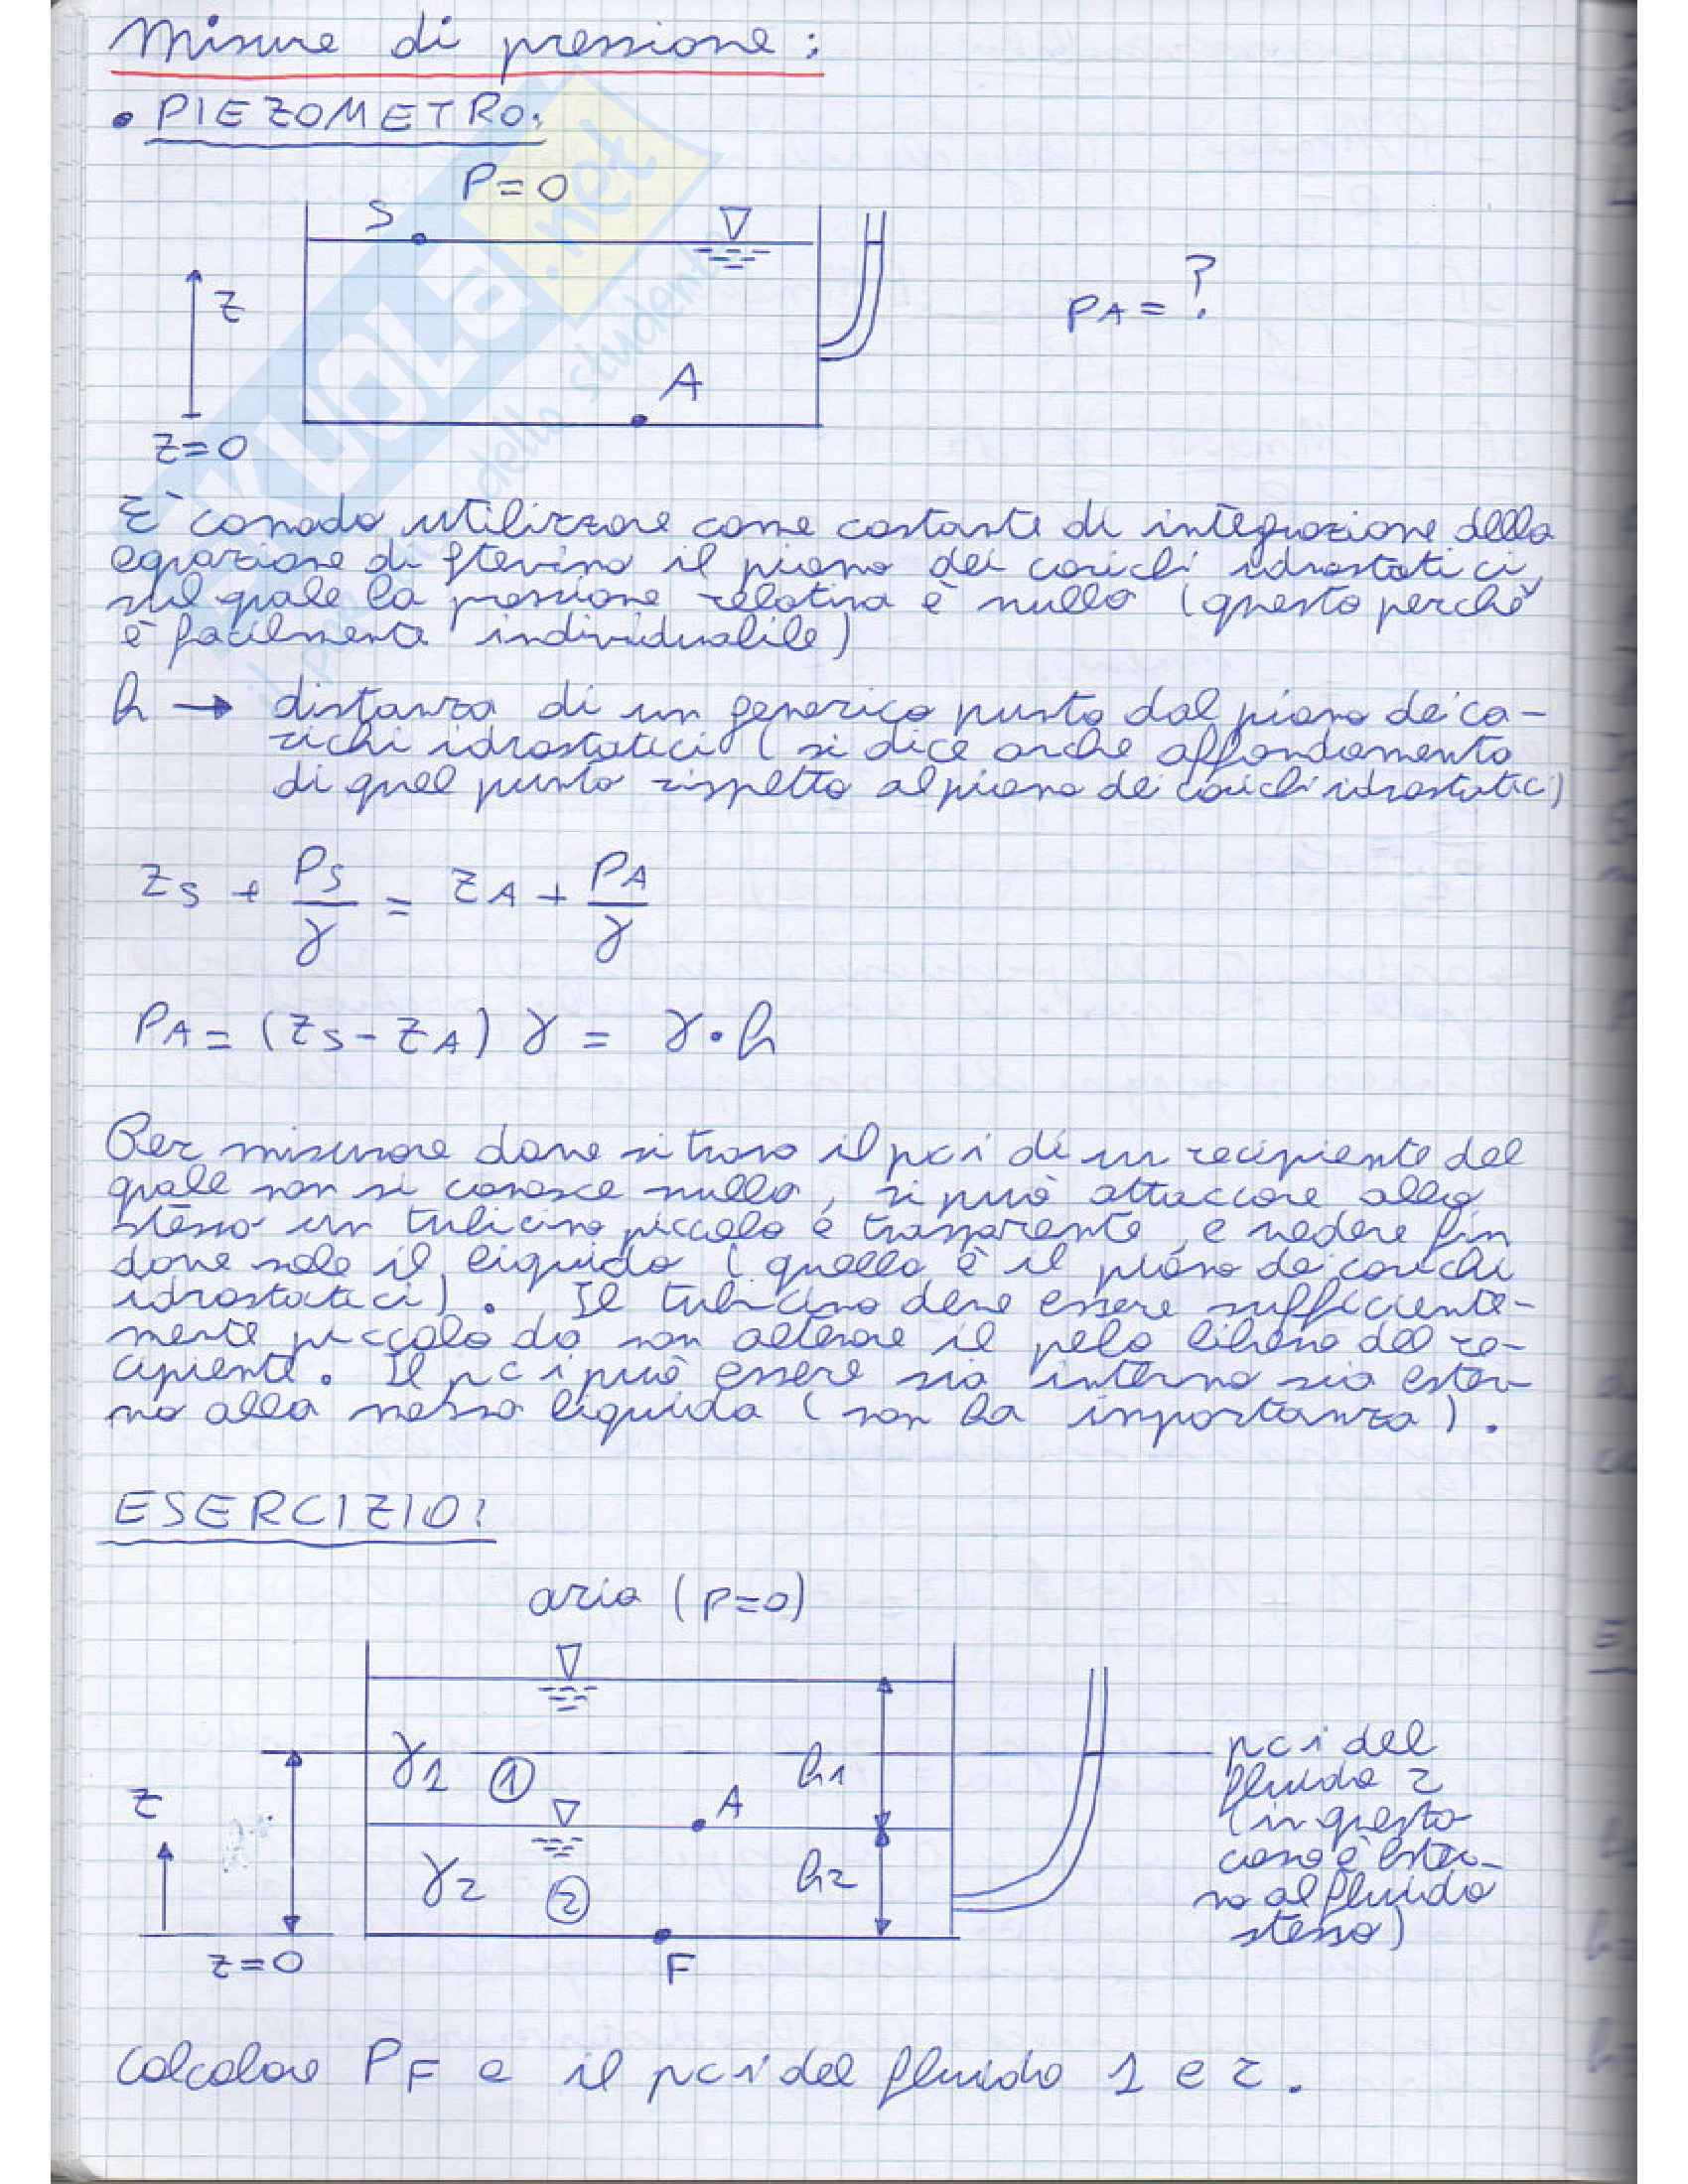 Misure di pressione:
• PIEZOMETRO:
P=0
S
z
PA = ?
A
z=0
È comodo utilizzare come costante di integrazione della
equazione di Stevino il piano dei carichi idrostatici,
sul quale la pressione relativa è nulla (questo perchè
è facilmente individuabile)
h → distanza di un generico punto dal piano dei ca-
richi idrostatici (si dice anche affondamento
di quel punto rispetto al piano dei carichi idrostatici)
zS + PS/γ = zA + PA/γ
PA = (zS - zA) γ = γ · h
Per misurare dove si trova il pci di un recipiente del
quale non si conosce nulla, si può attaccare allo
stesso un tubicino piccolo e trasparente, e vedere fin
dove sale il liquido (quello è il piano dei carichi
idrostatici). Il tubicino deve essere sufficiente-
mente piccolo da non alterare il pelo libero del re-
cipiente. Il pci può essere sia interno sia ester-
no alla massa liquida (non ha importanza).
ESERCIZIO:
aria (P=0)
γ1 ① h1
pci del
fluido 2
(in questo
caso è ester-
no al fluido
stesso)
z
A
γ2 ② h2
z=0
F
Calcolare PF e il pci del fluido 1 e 2.
SKUOLA.net
il portale dello studente